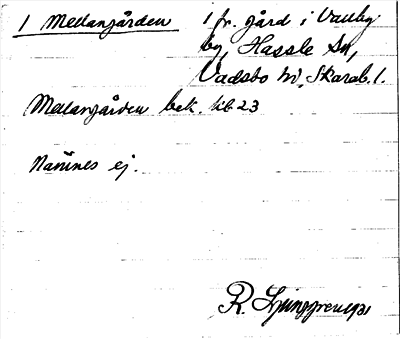 1 Mellangården 1 fr. gård i Vallby
by, Hassle Sn,
Vadsbo hd, Skarab. l.
Mellangården bek. till 23
Namnes ej.
R. Ljunggren 1921